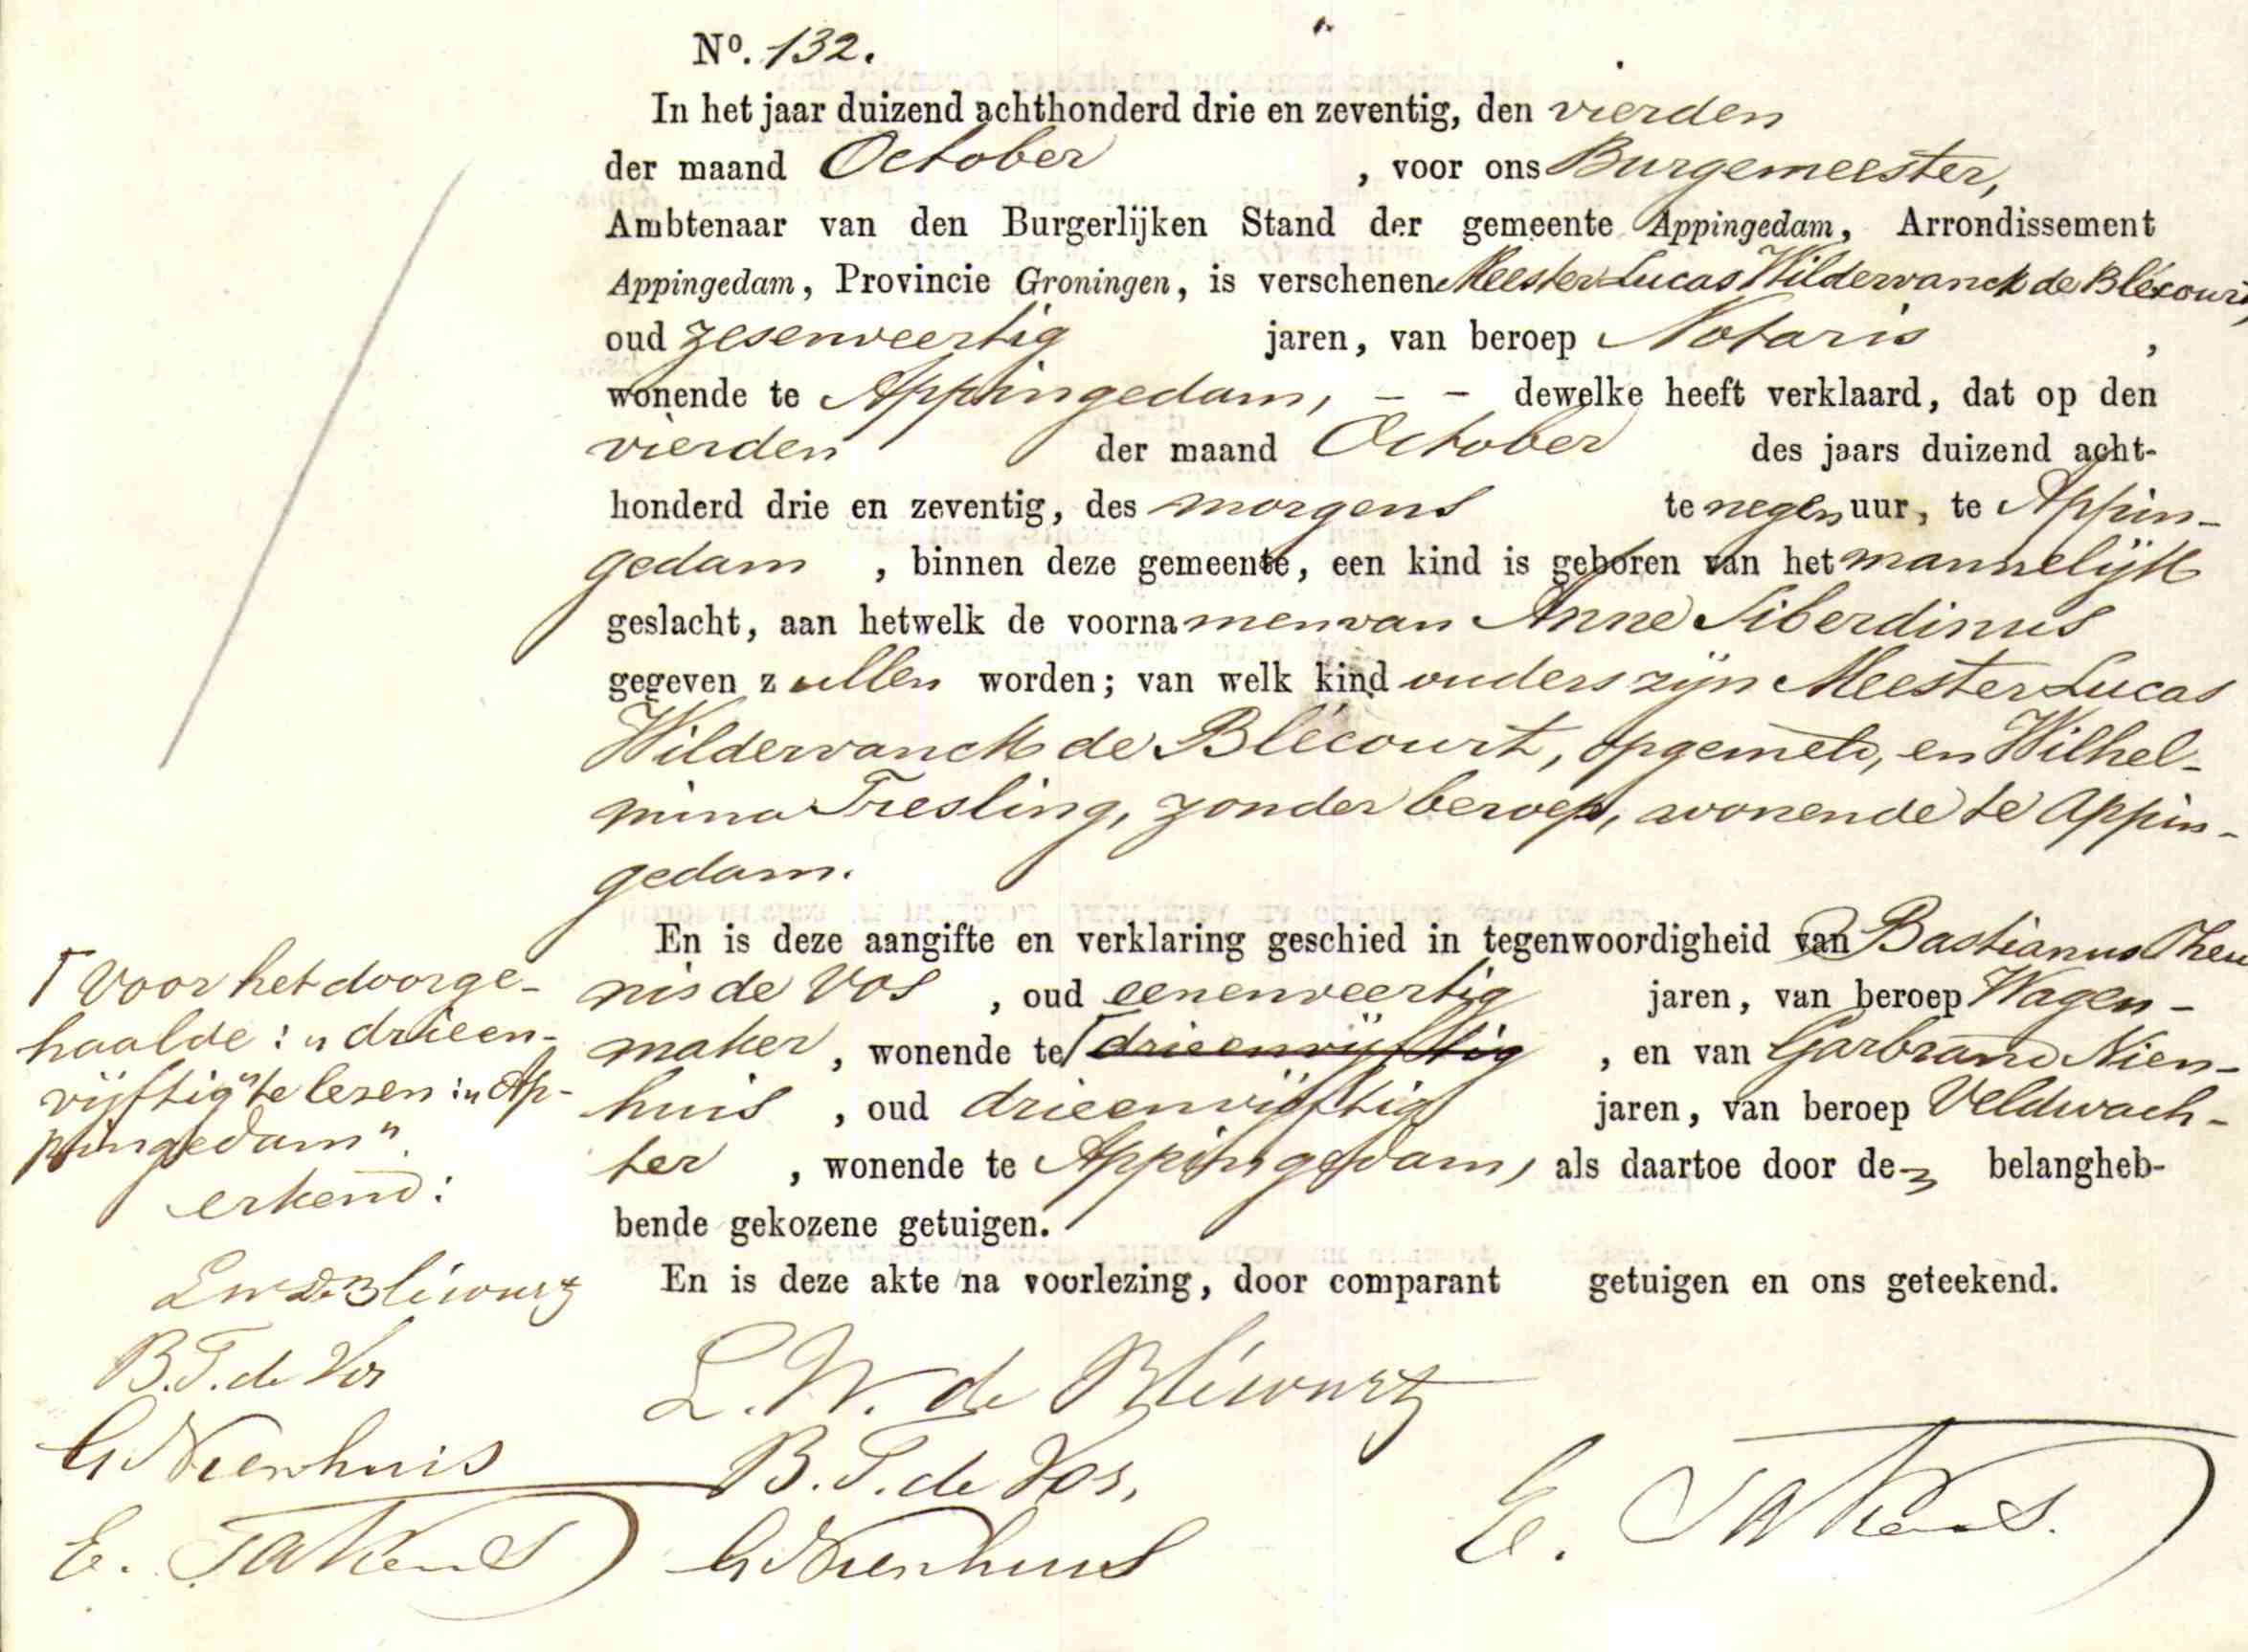 Nº. 132.
In het jaar duizend achthonderd drie en zeventig, den vierden
der maand October , voor ons Burgemeester,
Ambtenaar van den Burgerlijken Stand der gemeente Appingedam, Arrondissement
Appingedam, Provincie Groningen, is verschenen Meester Lucas Wildervanck de Blécourt,
oud zesenveertig jaren, van beroep Notaris ,
wonende te Appingedam, – – dewelke heeft verklaard, dat op den
vierden der maand October des jaars duizend acht-
honderd drie en zeventig, des morgens te negen uur, te Appin-
gedam , binnen deze gemeente, een kind is geboren van het mannelijk
geslacht, aan hetwelk de voornamen van Anne Siberdinus
gegeven zullen worden; van welk kind ouders zijn Meester Lucas
Wildervanck de Blécourt, opgemeld, en Wilhel-
mina Tresling, zonder beroep, wonende te Appin-
gedam.
En is deze aangifte en verklaring geschied in tegenwoordigheid van Bastianus Theu
nis de Vos , oud eenenveertig jaren, van beroep Wagen-
maker , wonende te drieenvijftig , en van Garbrand Nien-
huis , oud drieenvijftig jaren, van beroep Veldwach-
ter , wonende te Appingedam, als daartoe door de belangheb-
bende gekozene getuigen.
En is deze akte na voorlezing, door comparant getuigen en ons geteekend.
Voor het doorge-
haalde: „drieen-
vijftig" te lezen: „Ap-
pingedam".
erkend:
L W de Blécourt
B. T. de Vos
G Nienhuis
E. Takens
L. W. de Blécourt
B. T. de Vos,
G Nienhuis
E. Takens.